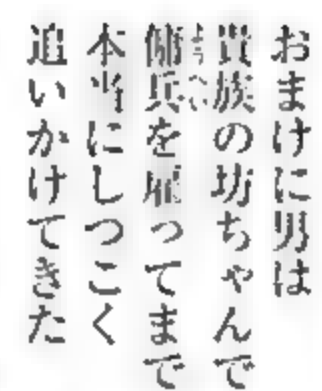 おまけに男は
貴族の坊ちゃんで
傭兵を雇ってまで
本当にしつこく
追いかけてきた